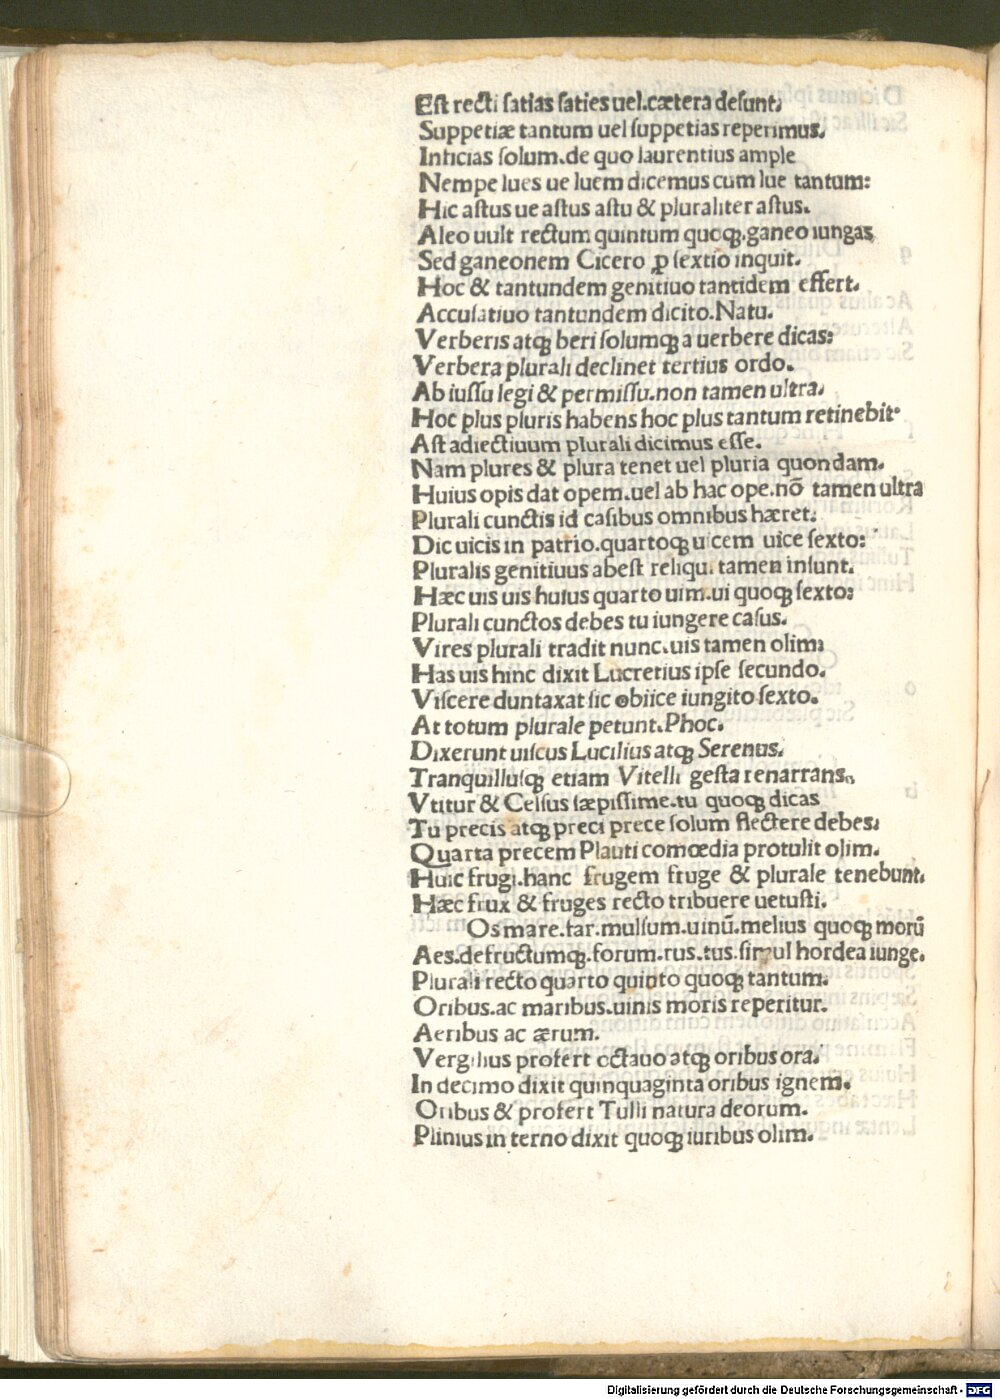 Est recti satias saties uel.cætera desunt.
Suppetiæ tantum uel suppetias reperimus.
Inficias solum.de quo laurentius ample
Nempe lues ue luem dicemus cum lue tantum:
Hic astus ue astus astu & pluraliter astus.
Aleo uult rectum quintum quoqꝫ.ganeo iungas
Sed ganeonem Cicero ꝓ sextio inquit.
Hoc & tantundem genitiuo tantidem effert.
Accusatiuo tantundem dicito.Natu.
Verberis atqꝫ beri solumqꝫ a uerbere dicas:
Verbera plurali declinet tertius ordo.
Ab iussu legi & permissu.non tamen ultra.
Hoc plus pluris habens hoc plus tantum retinebit
Ast adiectiuum plurali dicimus esse.
Nam plures & plura tenet uel pluria quondam.
Huius opis dat opem.uel ab hac ope.nō tamen ultra
Plurali cunctis id casibus omnibus hæret.
Dic uicis in patrio.quartoqꝫ uicem uice sexto:
Pluralis genitiuus abest reliqui tamen insunt.
Hæc uis uis huius quarto uim.ui quoqꝫ sexto:
Plurali cunctos debes tu iungere casus.
Vires plurali tradit nunc.uis tamen olim:
Has uis hinc dixit Lucretius ipse secundo.
Viscere duntaxat sic obiice iungito sexto.
At totum plurale petunt.Phoc.
Dixerunt uiscus Lucilius atqꝫ Serenus.
Tranquillusqꝫ etiam Vitelli gesta renarrans.
Vtitur & Celsus sæpissime.tu quoqꝫ dicas
Tu precis atqꝫ preci prece solum flectere debes.
Quarta precem Plauti comœdia protulit olim.
Huic frugi.hanc frugem fruge & plurale tenebunt.
Hæc frux & fruges recto tribuere uetusti.
Os mare.far.mulsum.uinū.melius quoqꝫ morū
Aes.defructumqꝫ.forum.rus.tus.simul hordea iunge.
Plurali recto quarto quinto quoqꝫ tantum.
Oribus.ac maribus.uinis moris reperitur.
Aeribus ac ærum.
Vergilius profert octauo atqꝫ oribus ora.
In decimo dixit quinquaginta oribus ignem.
Oribus & profert Tulli natura deorum.
Plinius in terno dixit quoqꝫ iuribus olim.
Digitalisierung gefördert durch die Deutsche Forschungsgemeinschaft - DFG